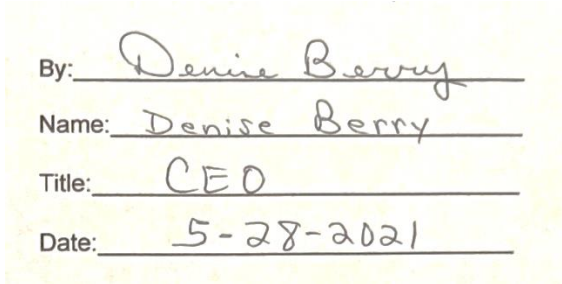 By: Denise Berry
Name: Denise Berry
Title: CEO
Date: 5-28-2021